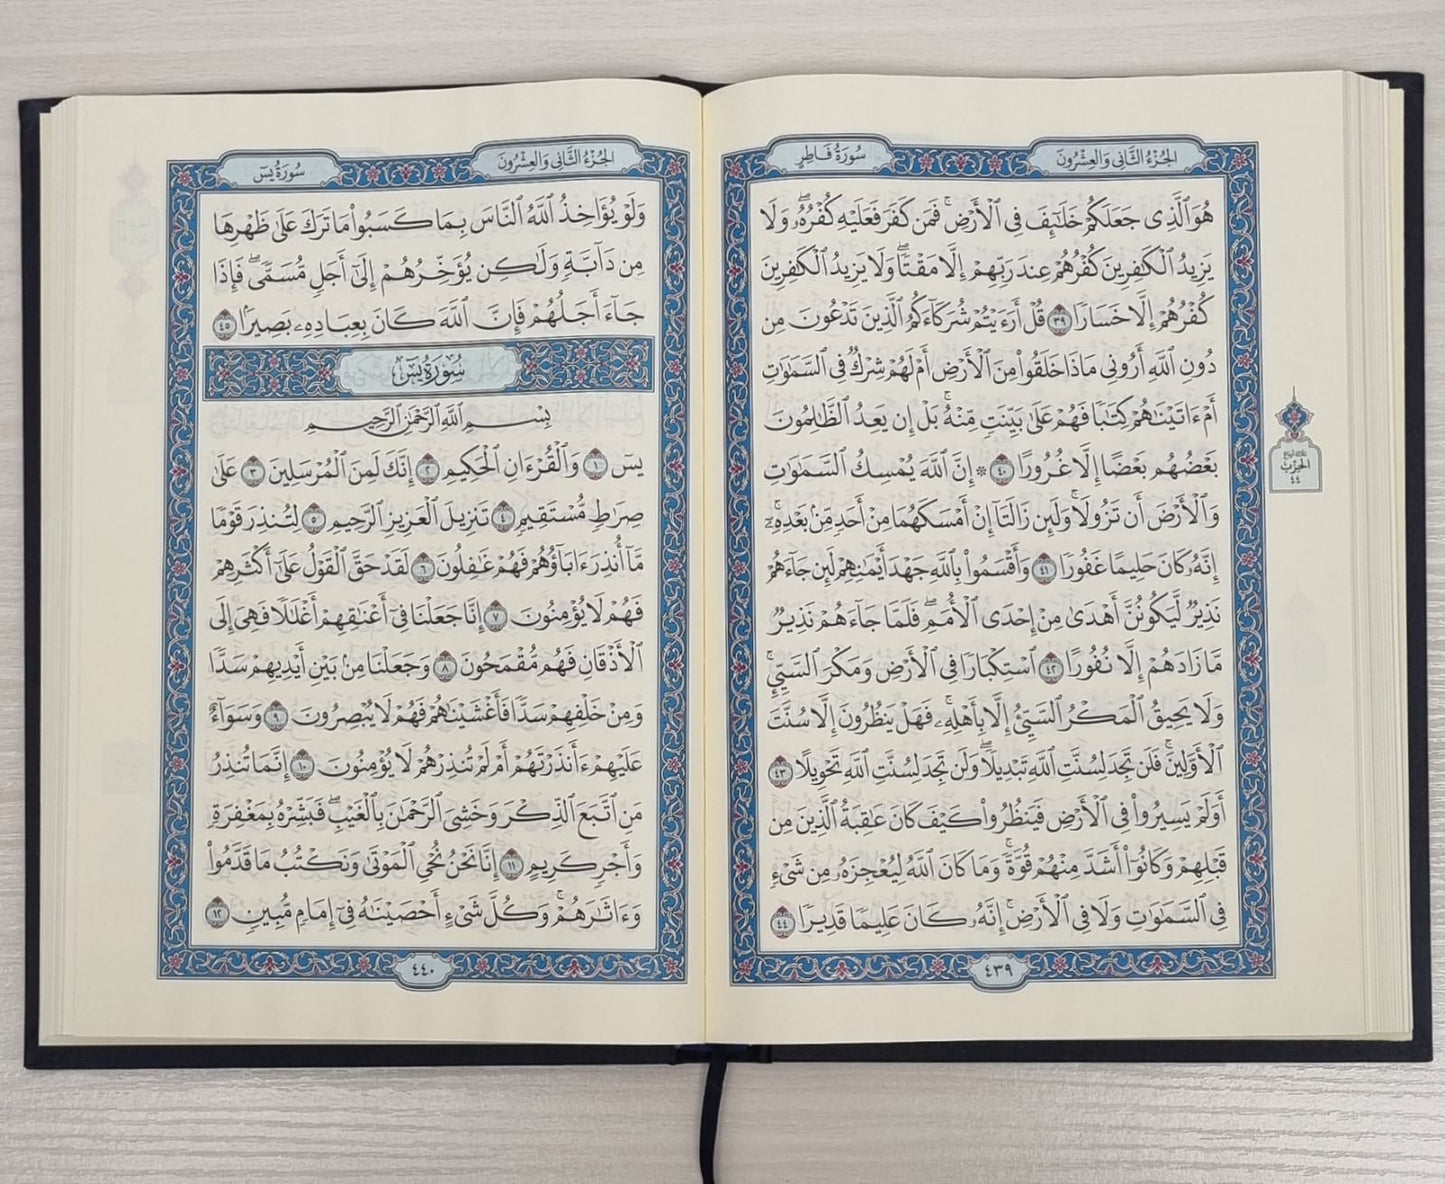 الجُزْءُ الثَّانِي وَالعِشْرُونَ
سُورَةُ فَاطِرٍ
هُوَ ٱلَّذِى جَعَلَكُمْ خَلَـٰٓئِفَ فِى ٱلْأَرْضِ ۚ فَمَن كَفَرَ فَعَلَيْهِ كُفْرُهُۥ ۖ وَلَا
يَزِيدُ ٱلْكَـٰفِرِينَ كُفْرُهُمْ عِندَ رَبِّهِمْ إِلَّا مَقْتًا ۖ وَلَا يَزِيدُ ٱلْكَـٰفِرِينَ
كُفْرُهُمْ إِلَّا خَسَارًا ٣٩ قُلْ أَرَءَيْتُمْ شُرَكَآءَكُمُ ٱلَّذِينَ تَدْعُونَ مِن
دُونِ ٱللَّهِ أَرُونِى مَاذَا خَلَقُوا۟ مِنَ ٱلْأَرْضِ أَمْ لَهُمْ شِرْكٌ فِى ٱلسَّمَـٰوَٰتِ
أَمْ ءَاتَيْنَـٰهُمْ كِتَـٰبًا فَهُمْ عَلَىٰ بَيِّنَتٍ مِّنْهُ ۚ بَلْ إِن يَعِدُ ٱلظَّـٰلِمُونَ
بَعْضُهُم بَعْضًا إِلَّا غُرُورًا ٤٠ ۞ إِنَّ ٱللَّهَ يُمْسِكُ ٱلسَّمَـٰوَٰتِ
وَٱلْأَرْضَ أَن تَزُولَا ۚ وَلَئِن زَالَتَآ إِنْ أَمْسَكَهُمَا مِنْ أَحَدٍ مِّنۢ بَعْدِهِۦٓ ۚ
إِنَّهُۥ كَانَ حَلِيمًا غَفُورًا ٤١ وَأَقْسَمُوا۟ بِٱللَّهِ جَهْدَ أَيْمَـٰنِهِمْ لَئِن جَآءَهُمْ
نَذِيرٌ لَّيَكُونُنَّ أَهْدَىٰ مِنْ إِحْدَى ٱلْأُمَمِ ۖ فَلَمَّا جَآءَهُمْ نَذِيرٌ
مَّا زَادَهُمْ إِلَّا نُفُورًا ٤٢ ٱسْتِكْبَارًا فِى ٱلْأَرْضِ وَمَكْرَ ٱلسَّيِّئِ ۚ
وَلَا يَحِيقُ ٱلْمَكْرُ ٱلسَّيِّئُ إِلَّا بِأَهْلِهِۦ ۚ فَهَلْ يَنظُرُونَ إِلَّا سُنَّتَ
ٱلْأَوَّلِينَ ۚ فَلَن تَجِدَ لِسُنَّتِ ٱللَّهِ تَبْدِيلًا ۖ وَلَن تَجِدَ لِسُنَّتِ ٱللَّهِ تَحْوِيلًا ٤٣
أَوَلَمْ يَسِيرُوا۟ فِى ٱلْأَرْضِ فَيَنظُرُوا۟ كَيْفَ كَانَ عَـٰقِبَةُ ٱلَّذِينَ مِن
قَبْلِهِمْ وَكَانُوٓا۟ أَشَدَّ مِنْهُمْ قُوَّةً ۚ وَمَا كَانَ ٱللَّهُ لِيُعْجِزَهُۥ مِن شَىْءٍ
فِى ٱلسَّمَـٰوَٰتِ وَلَا فِى ٱلْأَرْضِ ۚ إِنَّهُۥ كَانَ عَلِيمًا قَدِيرًا ٤٤
٤٣٩
الحِزْب
٤٤
الجُزْءُ الثَّانِي وَالعِشْرُونَ
سُورَةُ يسٓ
وَلَوْ يُؤَاخِذُ ٱللَّهُ ٱلنَّاسَ بِمَا كَسَبُوا۟ مَا تَرَكَ عَلَىٰ ظَهْرِهَا
مِن دَآبَّةٍ وَلَـٰكِن يُؤَخِّرُهُمْ إِلَىٰٓ أَجَلٍ مُّسَمًّى ۖ فَإِذَا
جَآءَ أَجَلُهُمْ فَإِنَّ ٱللَّهَ كَانَ بِعِبَادِهِۦ بَصِيرًۢا ٤٥
سُورَةُ يسٓ
بِسْمِ ٱللَّهِ ٱلرَّحْمَـٰنِ ٱلرَّحِيمِ
يسٓ ١ وَٱلْقُرْءَانِ ٱلْحَكِيمِ ٢ إِنَّكَ لَمِنَ ٱلْمُرْسَلِينَ ٣ عَلَىٰ
صِرَٰطٍ مُّسْتَقِيمٍ ٤ تَنزِيلَ ٱلْعَزِيزِ ٱلرَّحِيمِ ٥ لِتُنذِرَ قَوْمًا
مَّآ أُنذِرَ ءَابَآؤُهُمْ فَهُمْ غَـٰفِلُونَ ٦ لَقَدْ حَقَّ ٱلْقَوْلُ عَلَىٰٓ أَكْثَرِهِمْ
فَهُمْ لَا يُؤْمِنُونَ ٧ إِنَّا جَعَلْنَا فِىٓ أَعْنَـٰقِهِمْ أَغْلَـٰلًا فَهِىَ إِلَى
ٱلْأَذْقَانِ فَهُم مُّقْمَحُونَ ٨ وَجَعَلْنَا مِنۢ بَيْنِ أَيْدِيهِمْ سَدًّا
وَمِنْ خَلْفِهِمْ سَدًّا فَأَغْشَيْنَـٰهُمْ فَهُمْ لَا يُبْصِرُونَ ٩ وَسَوَآءٌ
عَلَيْهِمْ ءَأَنذَرْتَهُمْ أَمْ لَمْ تُنذِرْهُمْ لَا يُؤْمِنُونَ ١٠ إِنَّمَا تُنذِرُ
مَنِ ٱتَّبَعَ ٱلذِّكْرَ وَخَشِىَ ٱلرَّحْمَـٰنَ بِٱلْغَيْبِ ۖ فَبَشِّرْهُ بِمَغْفِرَةٍ
وَأَجْرٍ كَرِيمٍ ١١ إِنَّا نَحْنُ نُحْىِ ٱلْمَوْتَىٰ وَنَكْتُبُ مَا قَدَّمُوا۟
وَءَاثَـٰرَهُمْ ۚ وَكُلَّ شَىْءٍ أَحْصَيْنَـٰهُ فِىٓ إِمَامٍ مُّبِينٍ ١٢
٤٤٠